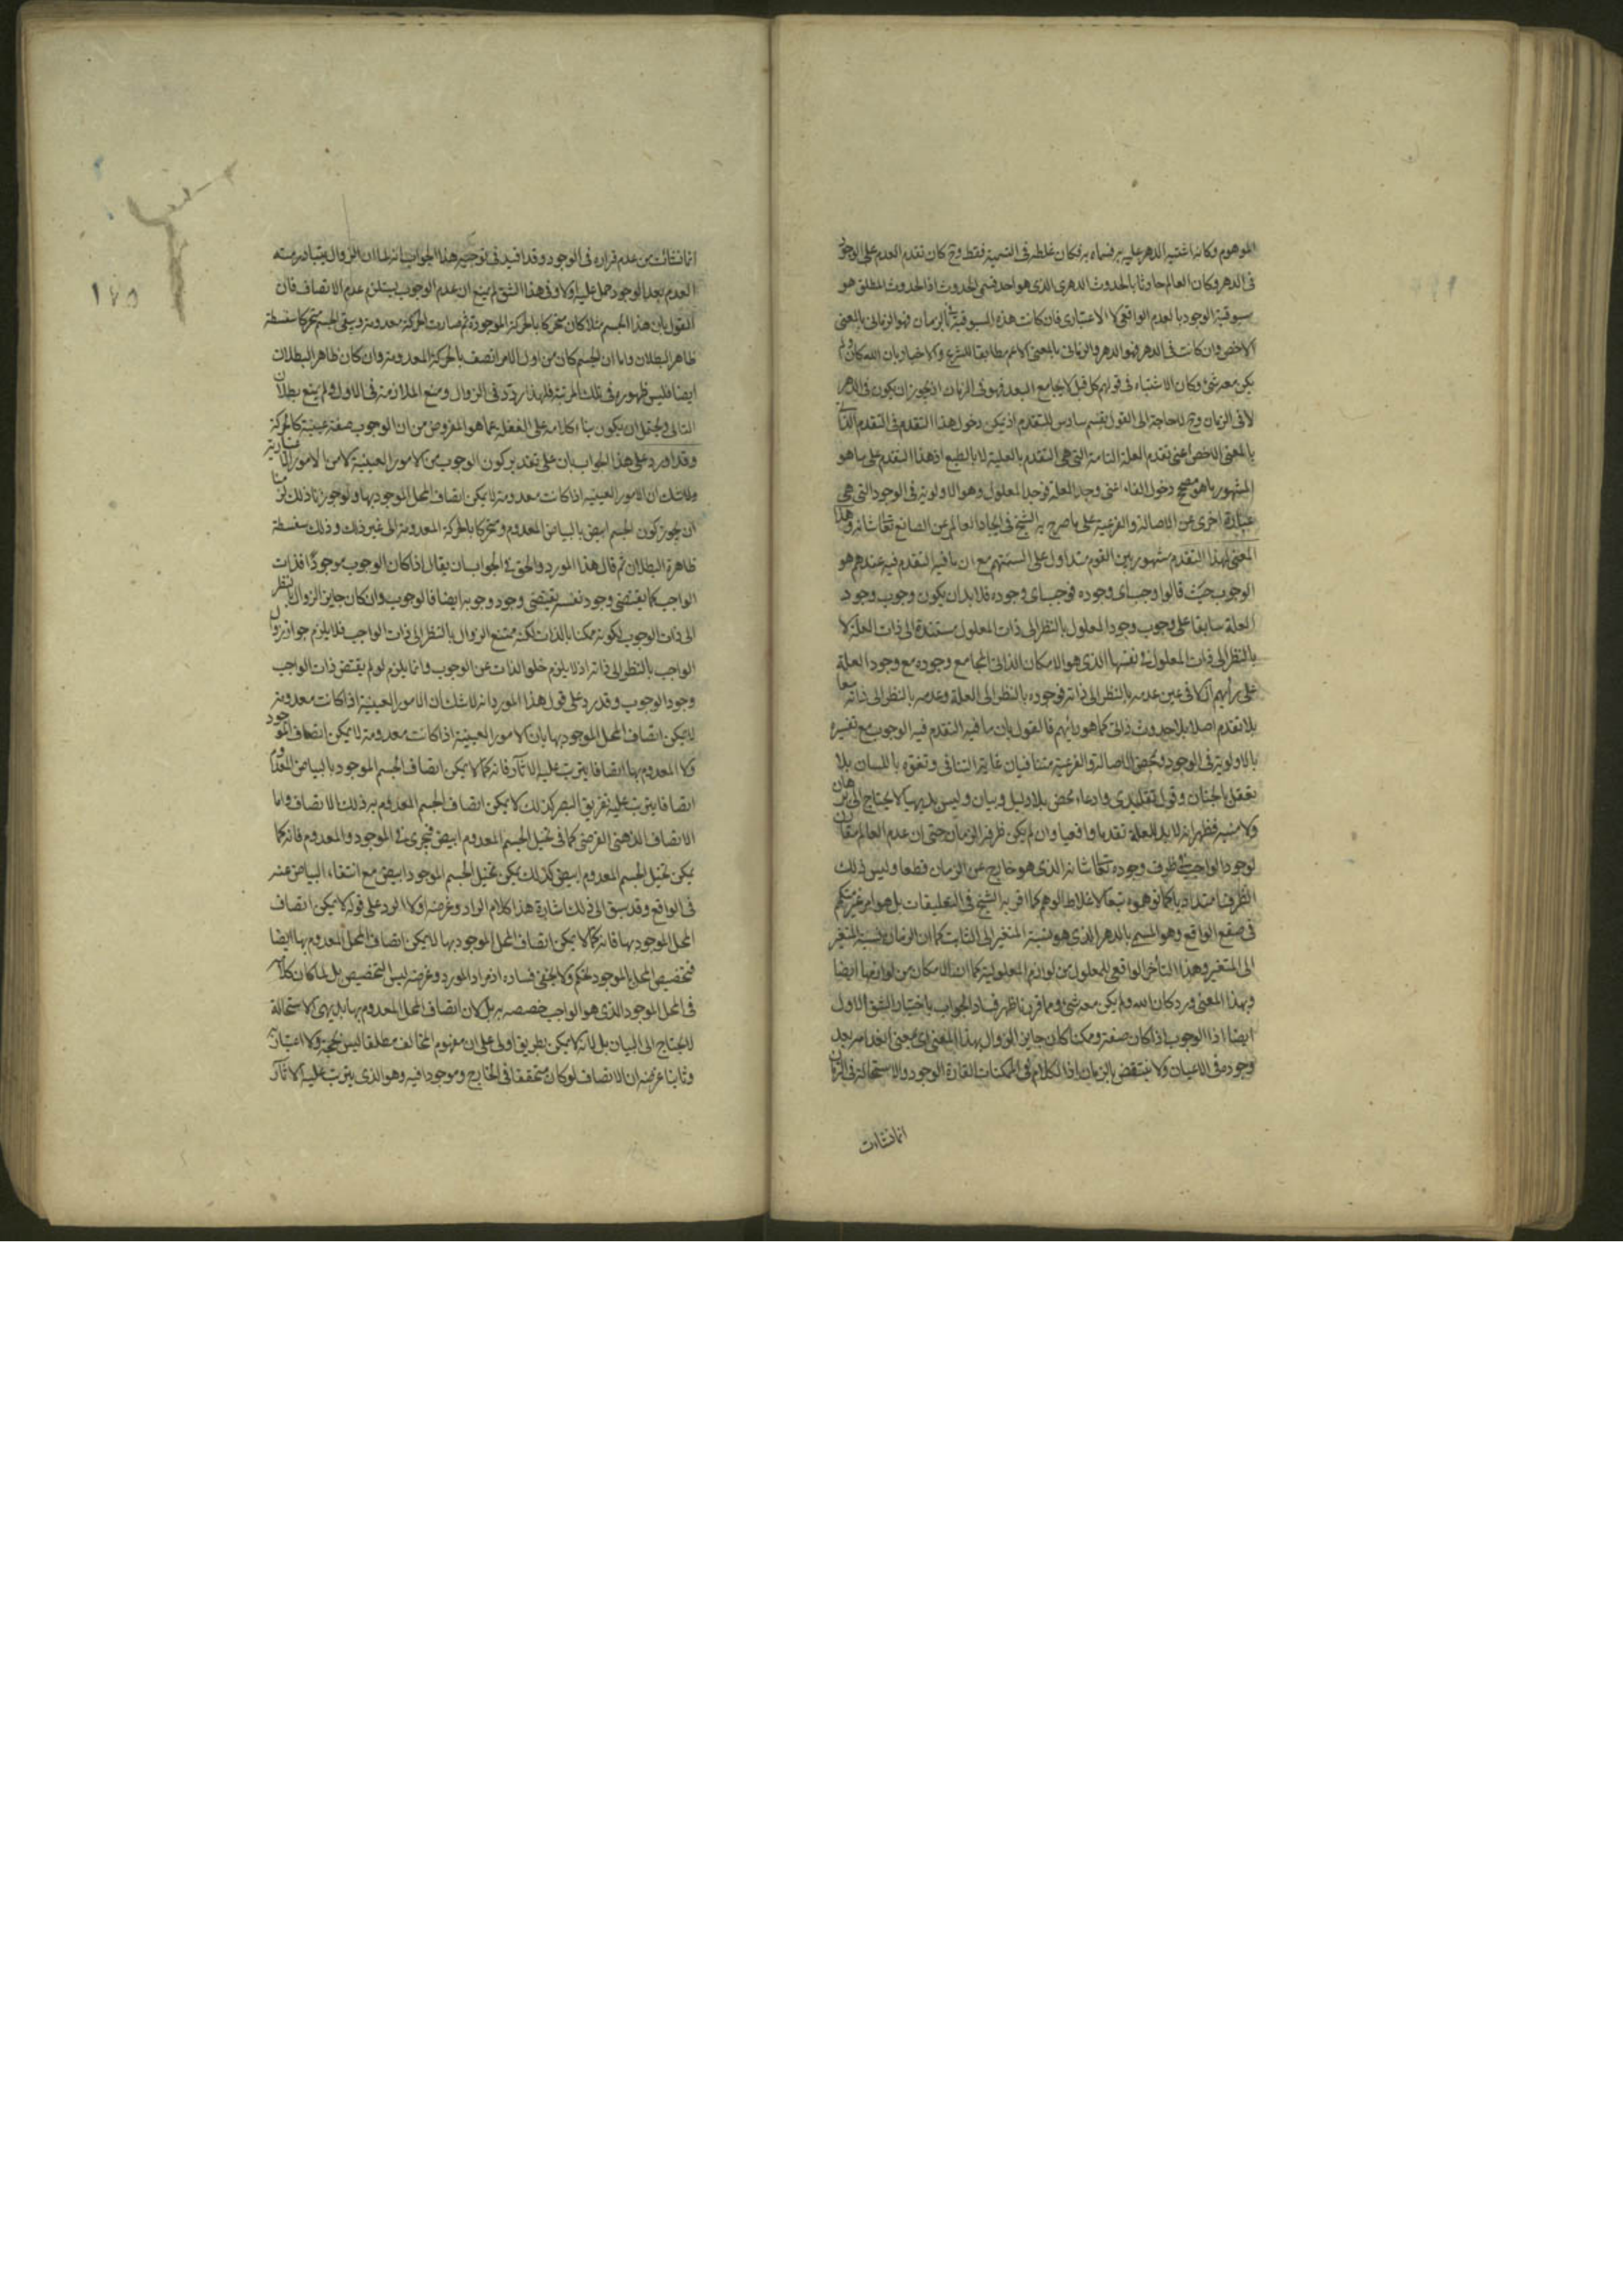 الموهوم وكانه اشتبه الدهر عليه به فسماه به فكان غلطه في التسمية فقط وح كان تقدم العدم على الوجود
في الدهر وكان العالم حادثا بالحدوث الدهري الذي هو احد قسمي الحدوث اذ الحدوث المطلق هو
مسبوقية الوجود بالعدم الواقعي لا الاعتباري فان كانت هذه المسبوقية بالزمان فهو الزماني بالمعنى
الاخص وان كانت في الدهر فهو الدهر والزماني بالمعنى الاعم مطابقا للشرع والاخبار بان الله كان ولم
يكن معه شئ وكان الاشتباه في قولهم كل قبل لا يجامع البعد فهو في الزمان اذ يجوز ان يكون في الدهر
لا في الزمان وح لا حاجة الى القول بقسم سادس للتقدم اذ يمكن دخول هذا التقدم في التقدم
بالمعنى الاخص اعني تقدم العلة التامة التي هي التقدم بالعلية لا بالطبع اذ هذا التقدم على ما هو
المشهور ما هو مصحح دخول الفاء اعني وجد العلة فوجد المعلول وهو الاولوية في الوجود التي هي
عبارة اخرى عن الاصالة والفرعية على ما صرح به الشيخ في ايجاد العالم عن الصانع تعالى شانه وهذا
المعنى لهذا التقدم مشهور بين القوم متداول على السنتهم مع ان ما فيه التقدم فيه عندهم هو
الوجوب حيث قالوا وجب اي وجوده فوجب اي وجوده فلا بد ان يكون وجوب وجود
العلة سابقا على وجوب وجود المعلول بالنظر الى ذات المعلول مستندة الى ذات العلة لا
بالنظر الى ذات المعلول في نفسها الذي هو الامكان الذاتي المجامع وجوده مع وجود العلة
على رأيهم آن كافى عين عدمه بالنظر الى ذاته فوجوده بالنظر الى العلة وعدمه بالنظر الى ذاته معا
بلا تقدم اصلا بلا حدوث ذاتي كما هو رأيهم فالقول بان ما فيه التقدم فيه الوجوب مع تفسيره
بالاولوية في الوجود وبمحض الاصالة والفرعية متنافيان غاية التنافي وتفوه باللسان بلا
تعقل بالجنان وقول تقليدي وادعاء محض بلا دليل وبيان وليس بديهيا لا يحتاج الى برهان
ولا منبه فظهر انه لا بد للعلة تقدما واقعيا وان لم يكن ظرفه الزمان حتى ان عدم العالم مقارن
لوجود الواجب في ظرف وجوده تعالى شانه الذي هو خارج عن الزمان قطعا وليس ذلك
الظرف امتداديا كما توهموه تبعا لاغلاط الوهم كما اقر به الشيخ في التعليقات بل هو امر غير متكمم
في صقع الواقع وهو المسمى بالدهر الذي هو نسبة المتغير الى الثابت كما ان الزمان نسبة المتغير
الى المتغير وهذا التأخر الواقعي للمعلول من لوازم المعلولية كما ان الامكان من لوازمها ايضا
وبهذا المعنى ورد كان الله ولم يكن معه شئ ومما قررنا ظهر فساد الجواب باختيار الشق الاول
ايضا اذ الوجوب اذا كان صفة وممكنا كان جايز الزوال بهذا المعنى اي بمعنى انعدامه بعد
وجوده في الاعيان ولا ينتقض بالزمان اذ الكلام في الممكنات القارة الوجود والاستحالة في الزمان
انما نشات
انما نشات من عدم قراره في الوجود وقد افيد في توجيه هذا الجواب انه لما ان الزوال يتبادر منه
العدم بعد الوجود حمل عليه اولا وفي هذا الشق لم يمنع ان عدم الوجوب يستلزم عدم الاتصاف فان
القول بان هذا الجسم مثلا كان متحركا بالحركة الموجودة ثم صارت الحركة معدومة وبقي الجسم متحركا سفسطة
ظاهر البطلان واما ان الجسم كان من اول الامر اتصف بالحركة المعدومة وان كان ظاهر البطلان
ايضا فليس ظهوره في تلك المرتبة فلهذا ردد في الزوال ومنع الملازمة في الاول ولم يمنع بطلان
التالي ويحتمل ان يكون بناء كلامه على الغفلة عما هو المفروض من ان الوجوب صفة عينية كالحركة
وقد اورد على هذا الجواب بان على تقدير كون الوجوب من الامور العينية لا من الامور
ولا شك ان الامور العينية اذا كانت معدومة لا يمكن اتصاف المحل الموجود بها ولو جوزنا ذلك
ان يجوز كون الجسم ابيض بالبياض المعدوم ومتحركا بالحركة المعدومة الى غير ذلك وذلك سفسطة
ظاهرة البطلان ثم قال هذا المورد والحق في الجواب ان يقال اذا كان الوجوب موجودا فذات
الواجب كما يقتضي وجود نفسه يقتضي وجود وجوبه ايضا فالوجوب وان كان جايز الزوال بالنظر
الى ذات الوجوب لكونه ممكنا بالذات لكنه ممتنع الزوال بالنظر الى ذات الواجب فلا يلزم جواز زوال
الواجب بالنظر الى ذاته اذ لا يلزم خلو الذات عن الوجوب وانما يلزم لو لم يقتض ذات الواجب
وجود الوجوب وقد رد على قول هذا المورد انه لا شك ان الامور العينية اذا كانت معدومة
لا يمكن اتصاف المحل الموجود بها بان الامور العينية اذا كانت معدومة لا يمكن اتصاف الموجود
ولا المعدوم بها اتصافا يترتب عليه الآثار فانه كما لا يمكن اتصاف الجسم الموجود بالبياض المعدوم
اتصافا يترتب عليه تفريق البصر كذلك لا يمكن اتصاف الجسم المعدوم به ذلك الاتصاف واما
الاتصاف الذهني الفرضي كما في تخيل الجسم المعدوم ابيض فيجري في الموجود والمعدوم فانه كما
يمكن تخيل الجسم المعدوم ابيض كذلك يمكن تخيل الجسم الموجود ابيض مع انتفاء البياض عنه
في الواقع وقد سبق الى ذلك اشارة هذا كلام الراد وغرضه اولا الرد على قوله لا يمكن اتصاف
المحل الموجود بها فانه كما لا يمكن اتصاف المحل الموجود بها لا يمكن اتصاف المحل المعدوم بها ايضا
فتخصيص المحل بالموجود تحكم ولا يخفى فساده اذ مراد المورد وغرضه ليس التخصيص بل لما كان كلامه
في المحل الموجود الذي هو الواجب خصصه به بل لان اتصاف المحل المعدوم بها بديهي الاستحالة
لا يحتاج الى البيان بل لانه لا يمكن بطريق اولى على ان مفهوم المخالف مطلقا ليس بحجة ولا اعتبار
وثانيا غرضه ان الاتصاف لو كان متحققا في الخارج وموجودا فيه وهو الذي يترتب عليه الآثار